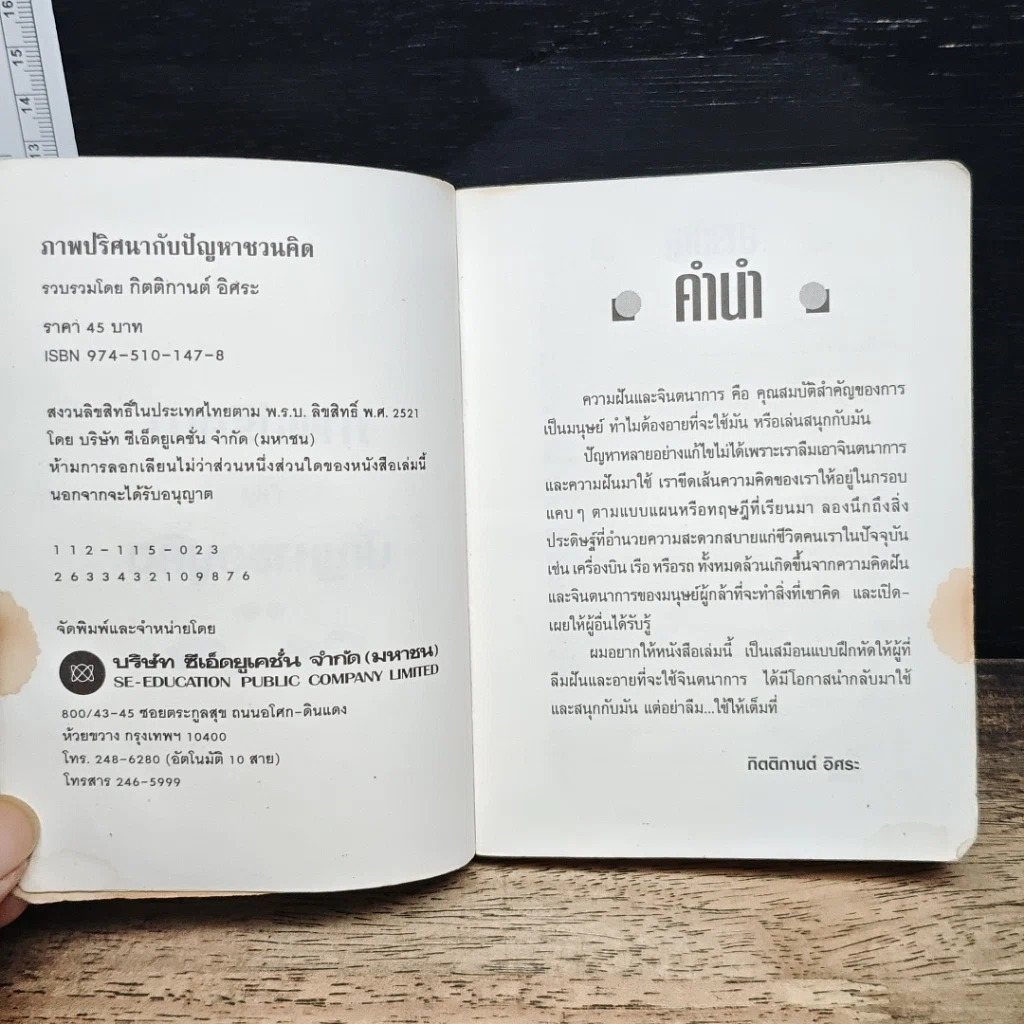 16
15
14
13
ภาพปริศนากับปัญหาชวนคิด
รวบรวมโดย กิตติกานต์ อิศระ
ราคา 45 บาท
ISBN 974-510-147-8
สงวนลิขสิทธิ์ในประเทศไทยตาม พ.ร.บ. ลิขสิทธิ์ พ.ศ. 2521
โดย บริษัท ซีเอ็ดยูเคชั่น จำกัด (มหาชน)
ห้ามการลอกเลียนไม่ว่าส่วนหนึ่งส่วนใดของหนังสือเล่มนี้
นอกจากจะได้รับอนุญาต
112-115-023
2633432109876
จัดพิมพ์และจำหน่ายโดย
บริษัท ซีเอ็ดยูเคชั่น จำกัด (มหาชน)
SE-EDUCATION PUBLIC COMPANY LIMITED
800/43-45 ซอยตระกูลสุข ถนนอโศก-ดินแดง
ห้วยขวาง กรุงเทพฯ 10400
โทร. 248-6280 (อัตโนมัติ 10 สาย)
โทรสาร 246-5999
คำนำ
ความฝันและจินตนาการ คือ คุณสมบัติสำคัญของการ
เป็นมนุษย์ ทำไมต้องอายที่จะใช้มัน หรือเล่นสนุกกับมัน
ปัญหาหลายอย่างแก้ไขไม่ได้เพราะเราลืมเอาจินตนาการ
และความฝันมาใช้ เราขีดเส้นความคิดของเราให้อยู่ในกรอบ
แคบๆ ตามแบบแผนหรือทฤษฎีที่เรียนมา ลองนึกถึงสิ่ง
ประดิษฐ์ที่อำนวยความสะดวกสบายแก่ชีวิตคนเราในปัจจุบัน
เช่น เครื่องบิน เรือ หรือรถ ทั้งหมดล้วนเกิดขึ้นจากความคิดฝัน
และจินตนาการของมนุษย์ผู้กล้าที่จะทำสิ่งที่เขาคิด และเปิด-
เผยให้ผู้อื่นได้รับรู้
ผมอยากให้หนังสือเล่มนี้ เป็นเสมือนแบบฝึกหัดให้ผู้ที่
ลืมฝันและอายที่จะใช้จินตนาการ ได้มีโอกาสนำกลับมาใช้
และสนุกกับมัน แต่อย่าลืม...ใช้ให้เต็มที่
กิตติกานต์ อิศระ